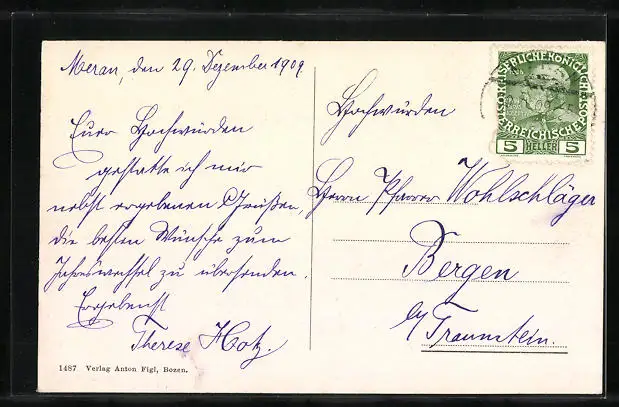 Meran, den 29. Dezember 1909.
Euer Hochwürden
gestatte ich mir
nebst ergebenen Grüßen,
die besten Wünsche zum
Jahreswechsel zu übersenden.
Ergebenst
Therese Hotz.
1487 Verlag Anton Figl, Bozen.
Hochwürden
Herrn Pfarrer Wohlschläger
Bergen
b/ Traunstein.
KAISERLICHE KÖNIGLICHE ÖSTERREICHISCHE
5 HELLER 5